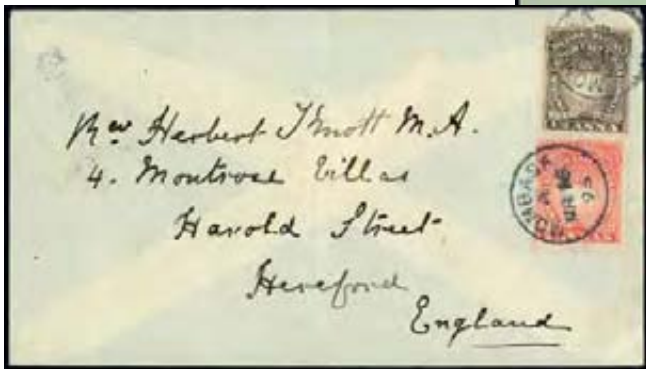 Rev Herbert Knott M.A.
4. Montrose Villas
Harold Street
Hereford
England
ANNA
MOMBASA